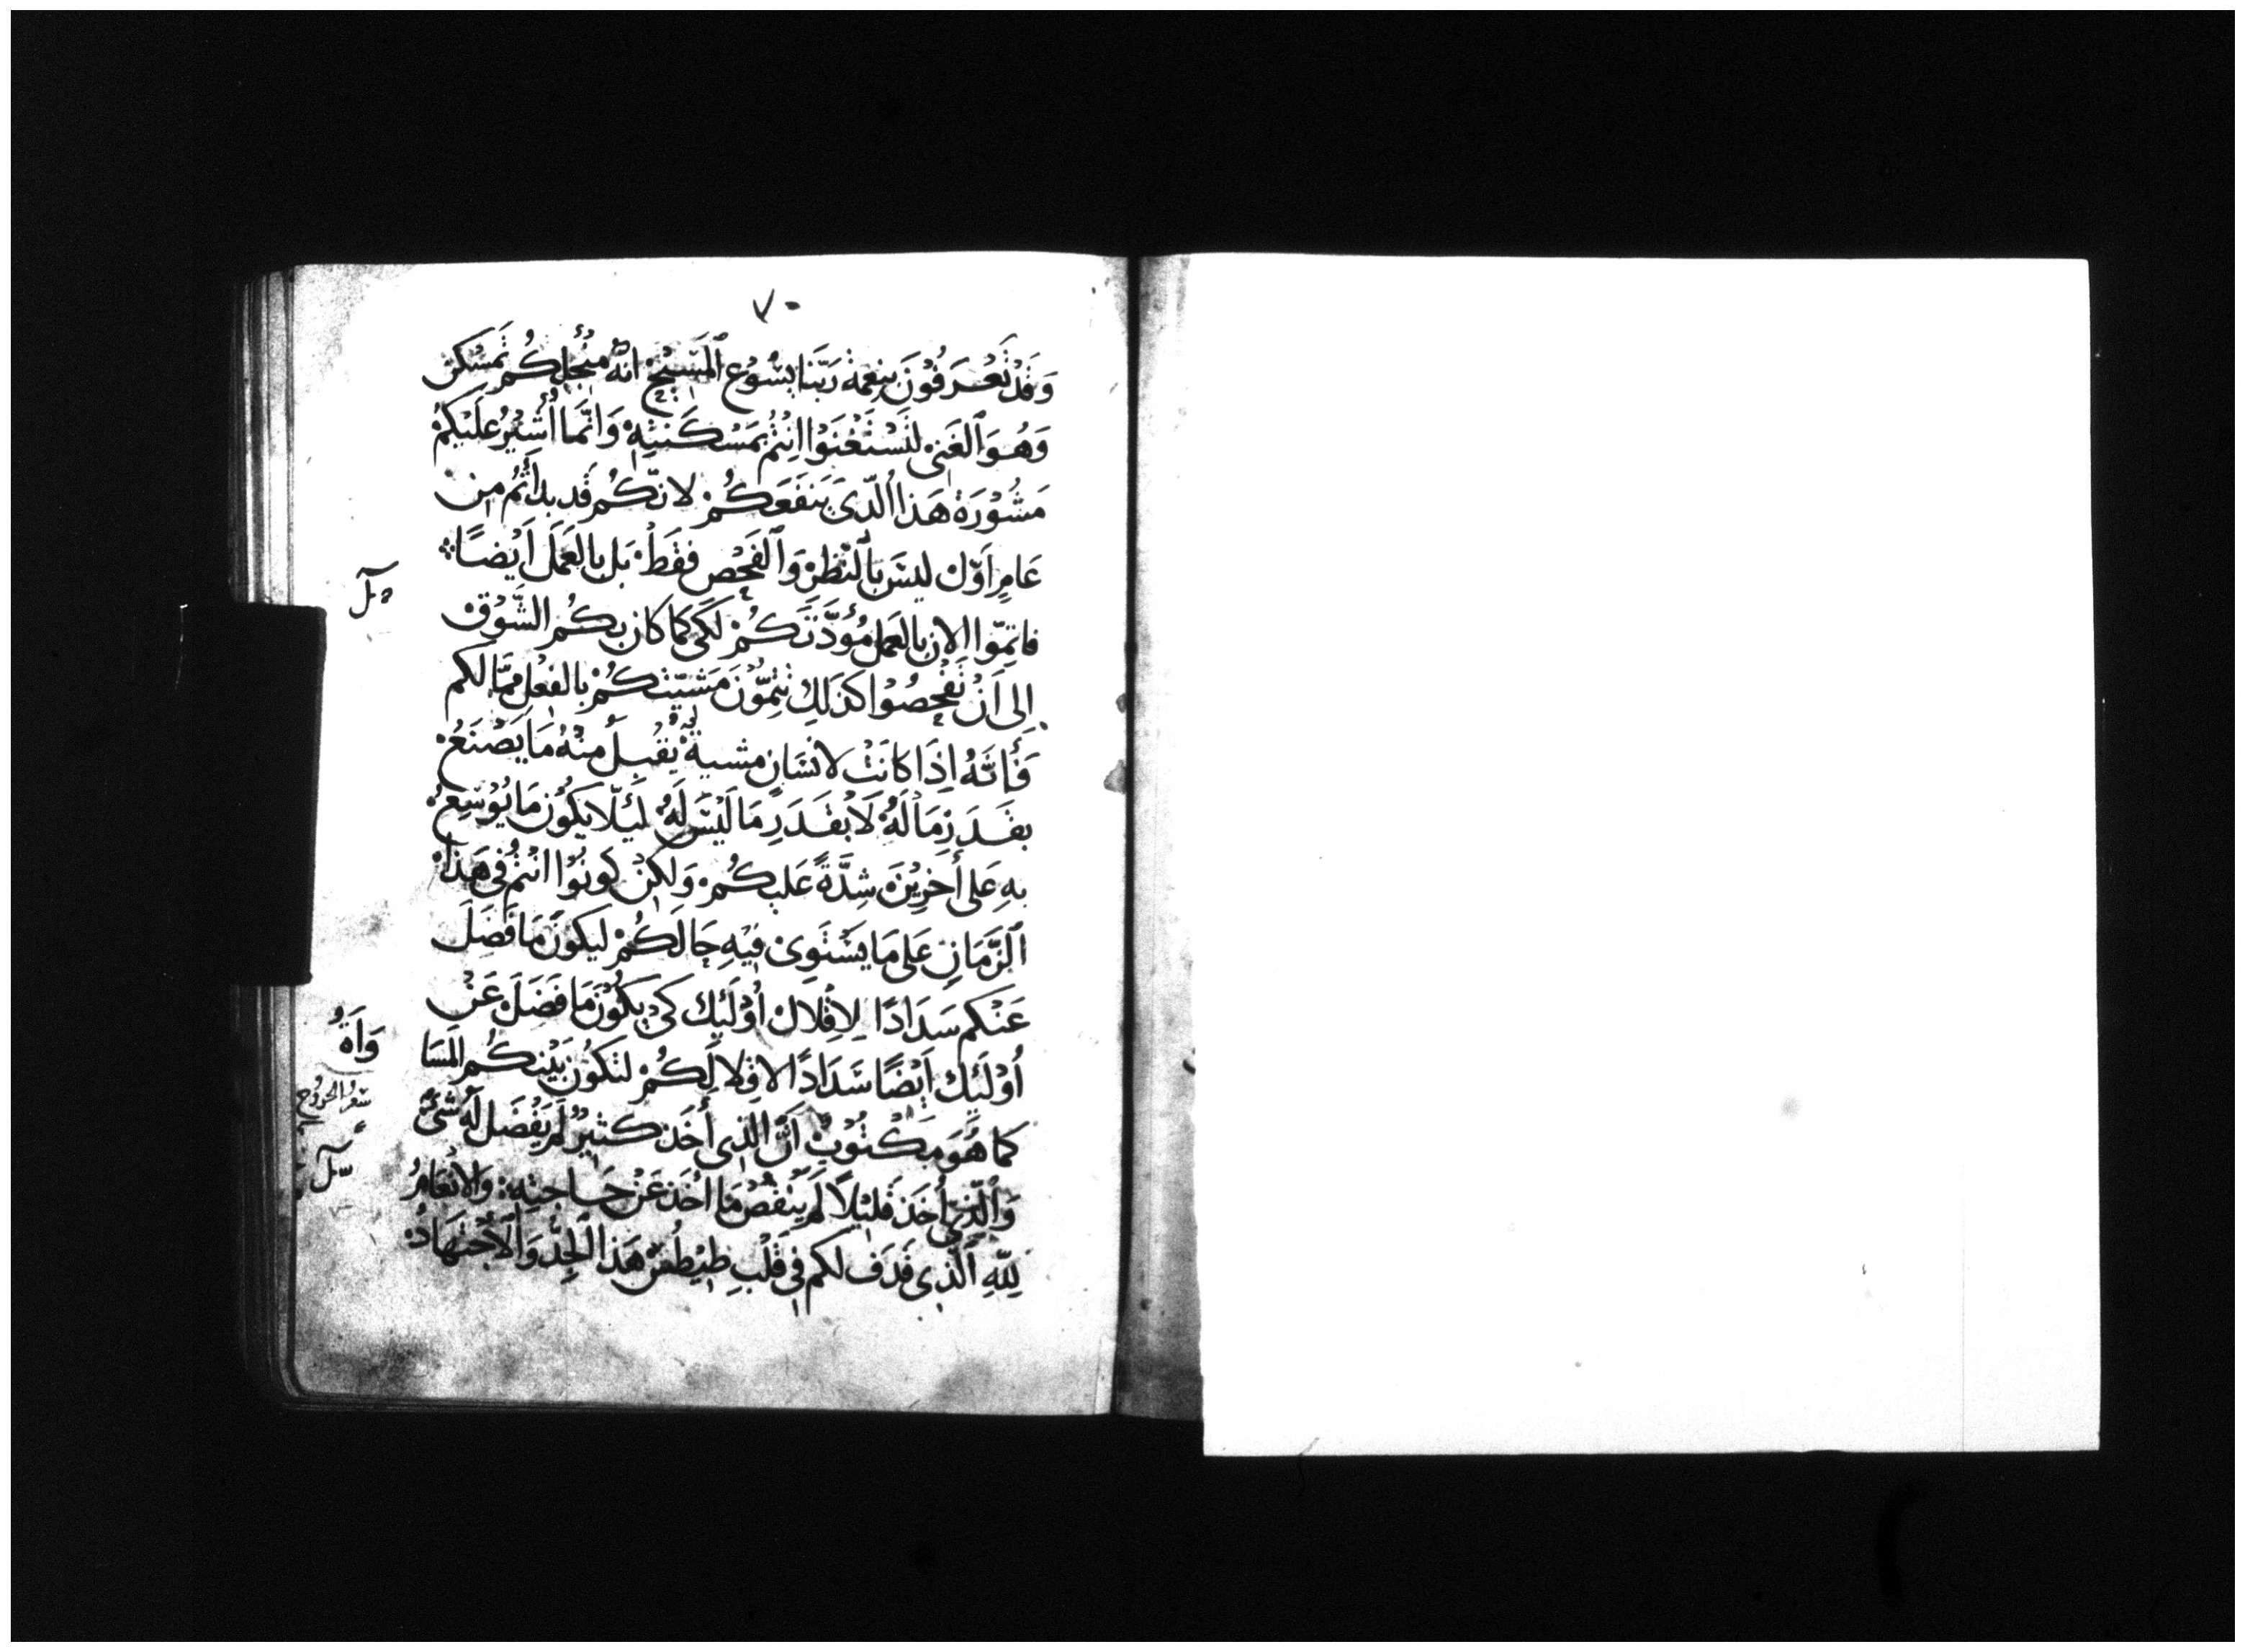 ٧٠
وَقَدْ تَعْرَفُوْنَ بنِعْمَةْ رَبّنَا يَسُوْع ٱلمَسِيْحْ انّهُ مِنْ أجْلِكُمْ تَمَسْكَنْ
وَهُوَ ٱلغَنِىْ لتَسْتَغْنَوْا انْتُمْ بمَسْكَنَتِهِْ وَانّمَا اُشِيْرُ عَلَيْكمْ
مَشُوْرَةْ هَذا ٱلّذىَ يَنفَعَكُمْ لانّكُم قَد بدأتُم مِن
عَامٍ اَوّل ليسَ بٱلنّظِرْ وَٱلفَحْص فقَطْ بَل بالعَمَل اَيْضًا
فاتِمّوا الان بالعَمل مُوَدَّتَكُمْ لكَى كَما كان بكُم الشّوْق
اِلى اَنْ تَفْحصُوْا كذلِك تتِمّوْنَ مَشيّتكُمْ بالفِعْل ممّا لكم
فَأنّهُ اِذَا كانَتْ لانسَانٍ مشيةْ يُقْبلُ مِنْهُ مَا يَصْنَعُ
بقَدَرِ مَا لَهُ لَا بْقَدَرِ مَا لَيْسَ لَهُ لَئِلّا يَكُوْن مَا يُوْسِعُ
بهِ عَلى أخِرِيْنَ شِدَّةً عَليكُمْ وَلكِنْ كونُوْا انتُمْ فى هَذا
ٱلزَّمَانِ عَلى مَا يَسْتَوِىْ فيْهِ حَالكُمْ ليكونَ مَا فَضَلَ
عَنْكم سَدَادًا لِاقْلال اُوْلَئِك كىْ يَكُوْنَ مَا فَضَلَ عَنْ
اُوْلَئِكَ اَيْضًا سَدَادًا لاقلالِكُمْ لتَكوْن بَيْنكُم المسَا
وَاةُ
كما هُوَ مَكْتُوْبٌ اَنَّ الّذِى أخَذ كَثيرْ لَم يَفْضَل لَهُ شىءٌ
وَٱلّذِى أخَذ قَليْلاً لَمْ يَنْقُصْ مَا اُخَذ عَنْ حَاجتِهِ وَالانْعَامُ
لِلّهِ ٱلّذِى قَذَف لكم فِى قَلْبِ طيْطُسْ هَذا ٱلجِدّ وَٱلاجْتِهَادْ